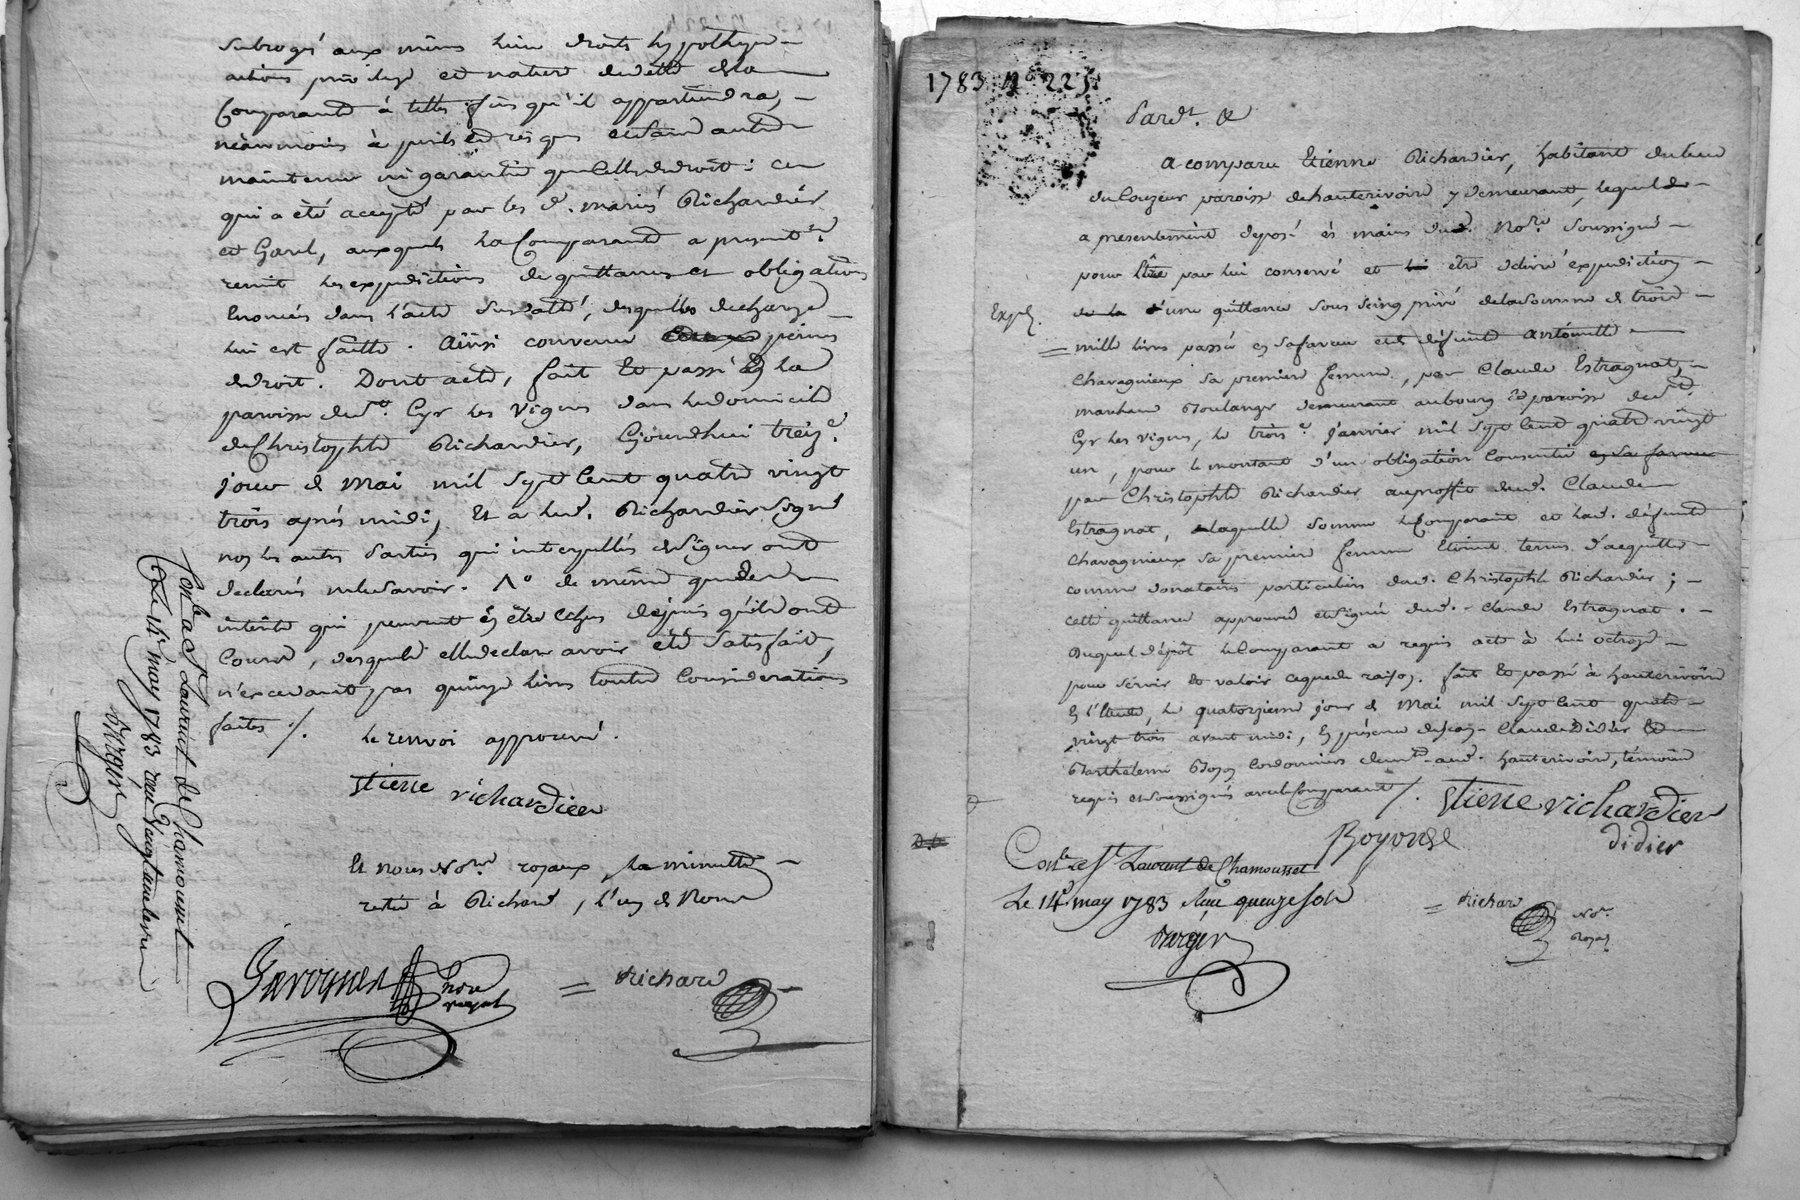 subrogés aux mêmes lieu droits hypotheque
actions privilege et nature de dette de la
Comparante à telles fins qu'il appartiendra,
néanmoins à perils et risques et sans autre
maintenue ni garantie que celle de droit : ce
qui a été accepté par les d. mariés Richardier
et Garel, auxquels la Comparante a presentemt
remit les expeditions de quittances et obligations
Enoncées dans l'acte susdatté, desquelles decharge
lui est faitte. Ainsi convenu peines
de droit. Dont acte, fait et passé En la
paroisse de St Cyr les vignes dans le domicile
de Christophle Richardier, Cejourd'hui treize
jour de Mai mil sept Cent quatre vingt
trois après midi, Et a led. Richardier signé
non les autres Parties qui interpellés de Signer ont
declarés ne le savoir. de même que des
intérêts qui peuvent en être échus depuis qu'ils ont
Couru, desquels elle declare avoir été satisfaite,
n'excedants pas quinze livres toutes Considerations
faites /.
le renvoi approuvé.
Etiene richardier
Et nous Nores royaux, la minutte
restée à Richard, l'un de Nous
nore
royal
= Richard
Conlé a St Laurent de Chamousset
may 1783 reçu
verger
1783 No 225
Pardt. &
A comparu Etienne Richardier, habitant du lieu
du Couzeur paroisse de hauterivoire y demeurant, lequel
a presentement déposé ès mains dud. Nore. soussigné
pour Etre par lui conservé et être délivré expedition
Expé. de la d'une quittance sous seing privé de la somme de trois
mille livres passée en sa faveur et de défunte Antoinette
Chavagnieux sa premiere femme, par Claude Estragnat,
marchand Boulanger demeurant au bourg et paroisse de St
Cyr les vignes, le trois e. Janvier mil sept Cent quatre vingt
un, pour le montant d'une obligation Consentie en sa faveur
par Christophle Richardier au proffit dud. Claude
Estragnat, laquelle somme le Comparant et lad. défunte
Chavagnieux sa premiere femme Etoient tenus d'acquitter
comme donataires particuliers dud. Christophle Richardier ;
cette quittance approuvée et signée dud. Claude Estragnat.
Duquel dépôt le Comparant a requis acte à lui octroyé
pour servir et valoir ce que de raison. fait et passé à hauterivoire
En l'Etude, le quatorzieme jour de Mai mil sept Cent quatre
vingt trois avant midi, En présence de Claude Didier Et
Barthelemi Boyon Cordonniers demts aud. hauterivoire, témoins
requis et soussignés avec le Comparant /. Etiene richardier
Boyon
didier
Conlé a St Laurent de Chamousset
Le 14e may 1783 Reçu quinze sols
verger
= Richard
Nore.
Royal